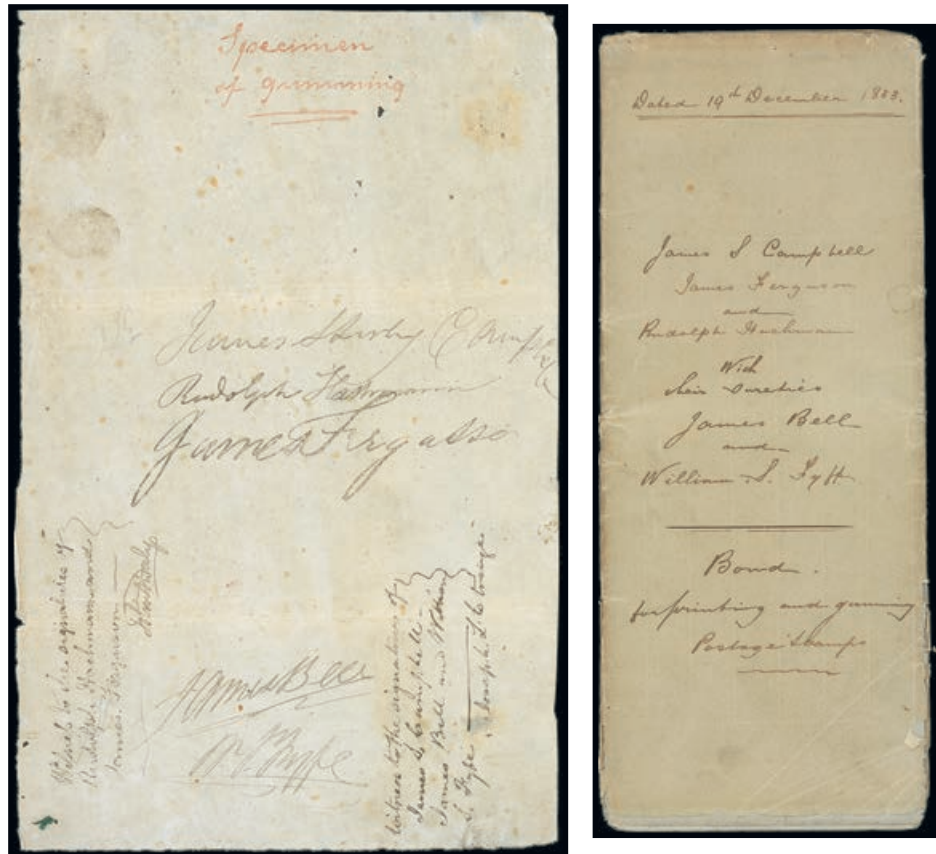 Specimen
of gumming
James Sturby Campbell
Rudolph Hachmann
James Ferguson
James Bell
W. S. Fyffe
Witness to the signatures of
Rudolph Hachmann and
James Ferguson
Witness to the signatures of
James S. Campbell
James Bell and William
S. Fyfe
Dated 19th December 1883.
James S Campbell
James Ferguson
and
Rudolph Hachmann
With
their sureties
James Bell
and
William S. Fyff
Bond.
for printing and gumming
Postage Stamps